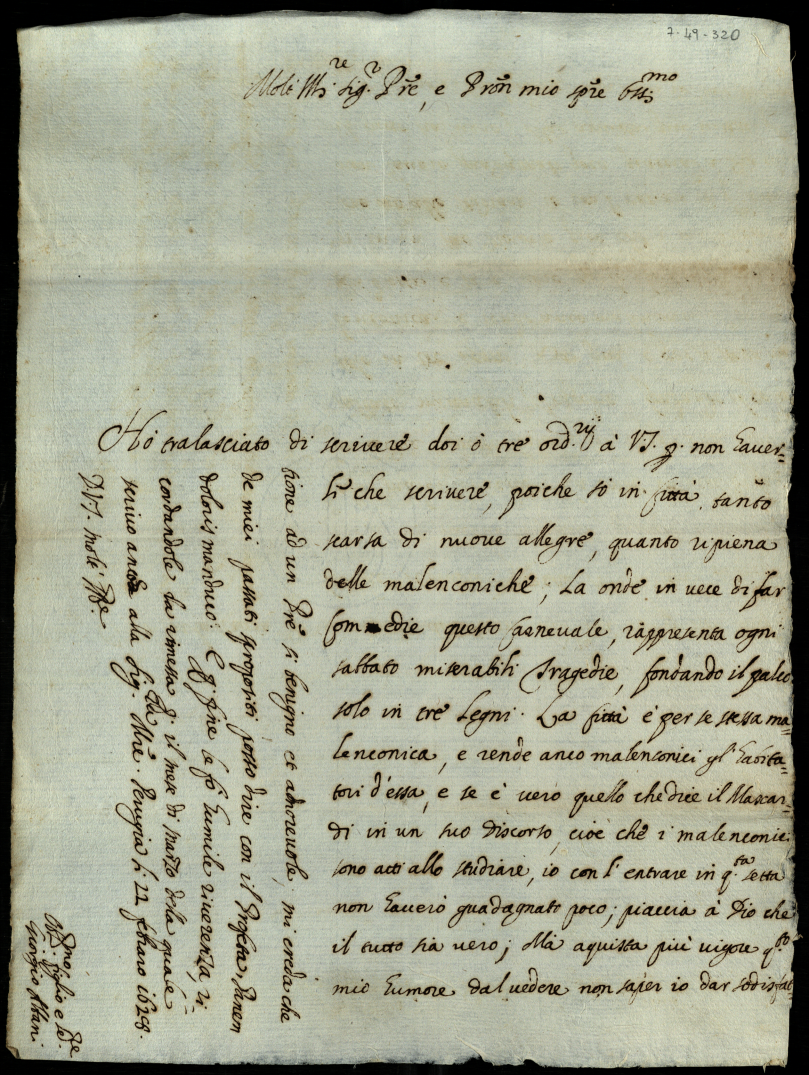 7-49-320
Molt' Ill.re Sig.r Pre, e Pron mio sPre Oss.mo
Hò tralasciato di scrivere doi ò tre ord.rij à VS. p. non haver-
li che scrivere, poiche stò in città tanto
scarsa di nuove allegre, quanto ripiena
delle malenconiche; La onde in vece di far
Commedie questo Carnevale, rappresenta ogni
sabbato miserabili Tragedie, fondando il palco
solo in trè Legni. La città è per se stessa ma=
lenconica, e rende anco malenconici gl' habita=
tori d'essa, e se è vero quello che dice il Mascar=
di in un suo Discorso, cioè che i malenconici
sono atti allo studiare, io con l' entrare in q.ta setta
non haverò guadagnato poco; piaccia à Dio che
il tutto sia vero; Mà aquista più vigore q.to
mio humore dal vedere non saper io dar sodisfat=
tione ad un Pre si benigno et amorevole, mi creda che
de miei passati spropositi posso dire con il Profeta, Panem
doloris manduco. E q. fine le fò humile riverenza, ri=
cordandole la rimessa p. il mese di Marzo della quale
scrivo anco alla Sig.ra Mre. Perugia li 22 febraro 1628.
D. VS. Molt' Ill.re
figlio e Se.re
Giorgio